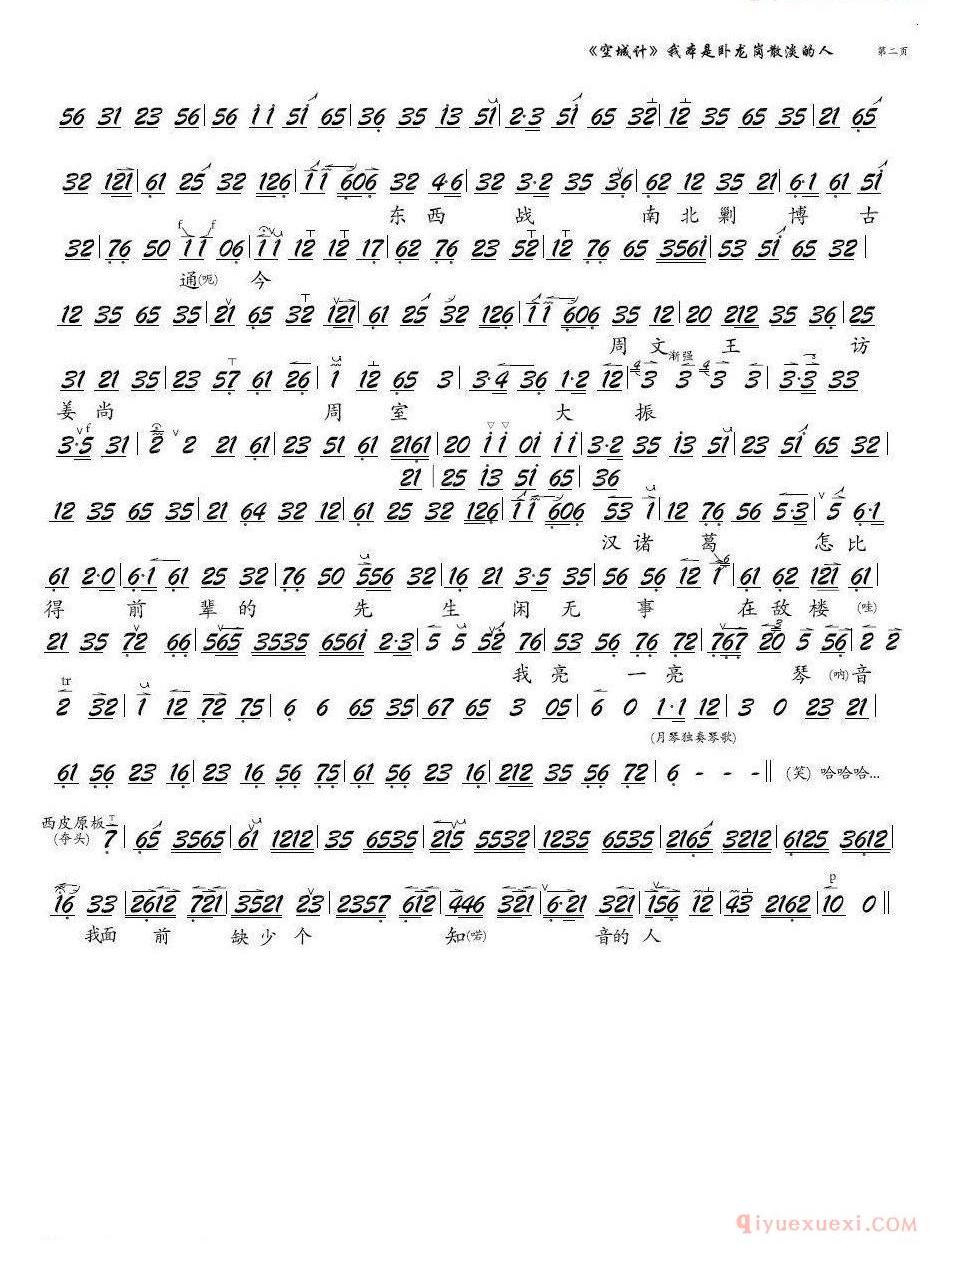 《空城计》我本是卧龙岗散淡的人 第二页
56 31 23 56|56 i i 5i 65|36 35 i3 5i|2·3 5i 65 32|12 35 65 35|21 65
32 121|61 25 32 126|i i 606 32 4·6|32 3·2 35 36|62 12 35 21|6·1 61 5i
东西 战 南北剿 博 古
32|76 50 11 06|11 12 12 17|62 76 23 52|12 76 65 356i|53 5i 65 32|
通(呃) 今
12 35 65 35|21 65 32 121|61 25 32 126|11 606 35 12|20 212 35 36|25
周 文 王 访
渐强
31 21 35|23 57 61 26|1 12 65 3|3·4 36 1·2 12|3 3 3 3|3·3 33
姜 尚 周 室 大 振
3·5 31|2 2 21 61|23 51 61 2161|20 i i 0i i i|3·2 35 i3 5i|23 5i 65 32|
21|25 i3 5i 65|36
12 35 65 35|21 64 32 12|61 25 32 126|11 606 53 1|12 76 56 5·3|5 6·1
汉 诸 葛 怎 比
61 2·0|6·1 61 25 32|76 50 556 32|16 21 3·5 35|56 56 12 1|61 62 121 61|
得 前 辈 的 先 生 闲 无 事 在 敌 楼 (哇)
21 35 72 66|565 3535 656i 2·3|5 5 52 76|53 56 76 72|767 20 5 56|2 2
我 亮 一 亮 琴 (呐)音
tr
2 32|1 12 72 75|6 6 65 35|67 65 3 05|6 0 1·1 12|3 0 23 21|
(月琴独奏琴歌)
61 56 23 16|23 16 56 75|61 56 23 16|212 35 56 72|6 - - -‖ (笑) 哈哈哈...
西皮原板
(夺头) 7|65 3565|61 1212 35 6535|215 5532|1235 6535|2165 3212|6125 3612|
16 33|2612 721|3521 23|2357 612|446 321|6·21 321|156 12|43 2162|10 0‖
我面 前 缺 少 个 知(喏) 音的 人
qiyuexuexi.COM